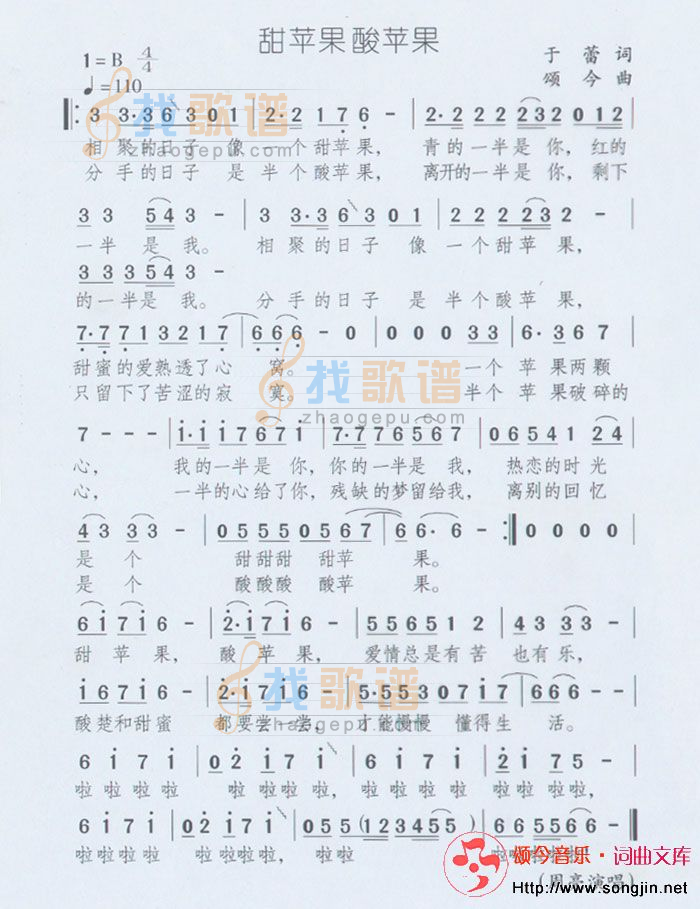 甜苹果 酸苹果
1=B 4/4
于 蕾 词
♩=110
颂 今 曲
3 3·3 6 3 0 1 2·2 1 7 6 - 2·2 2 2 2 3 2 0 1 2
相聚的日子 像 一个甜苹果, 青的一半是你,红的
分手的日子 是 半个酸苹果, 离开的一半是你,剩下
3 3 5 4 3 - 3 3·3 6 3 0 1 2 2 2 2 2 3 2 -
一半是我。 相聚的日子 像 一个甜苹果,
3 3 3 5 4 3 -
的一半是我。 分手的日子 是 半个酸苹果,
7·7 7 1 3 2 1 7 6 6 6 - 0 0 0 0 3 3 6·3 6 7
甜蜜的爱熟透了心 窝。 一个 苹果两颗
只留下了苦涩的寂 寞。 半个 苹果破碎的
7 - - - 1·1 1 7 6 7 1 7·7 7 6 5 6 7 0 6 5 4 1 2 4
心, 我的一半是你,你的一半是我, 热恋的时光
心, 一半的心给了你,残缺的梦留给我, 离别的回忆
4 3 3 3 - 0 5 5 5 0 5 6 7 6 6· 6 - 0 0 0 0
是个 甜甜甜 甜苹 果。
是个 酸酸酸 酸苹 果。
6 1 7 1 6 - 2·1 7 1 6 - 5 5 6 5 1 2 4 3 3 3 -
甜苹果, 酸苹果, 爱情总是有苦 也有乐,
1 6 7 1 6 - 2·1 7 1 6 - 5·5 5 3 0 7 1 7 6 6 6 -
酸楚和甜蜜 都要尝一尝, 才能慢慢 懂得生 活。
6 1 7 1 0 2 1 7 1 6 6 1 7 1 2 1 7 5
啦啦啦啦 啦啦啦啦, 啦啦啦啦 啦啦啦啦,
6 1 7 1 0 2 1 7 1 6 0 5 5 (1 2 3 4 5 5) 6 6 5 5 6 6 -
啦啦啦啦 啦啦啦啦, 啦啦
(周亮演唱)
找歌谱
zhaogepu.com
找歌谱
zhaogepu.com
找歌谱
zhaogepu.com
颂今音乐·词曲文库
www.songjin.net